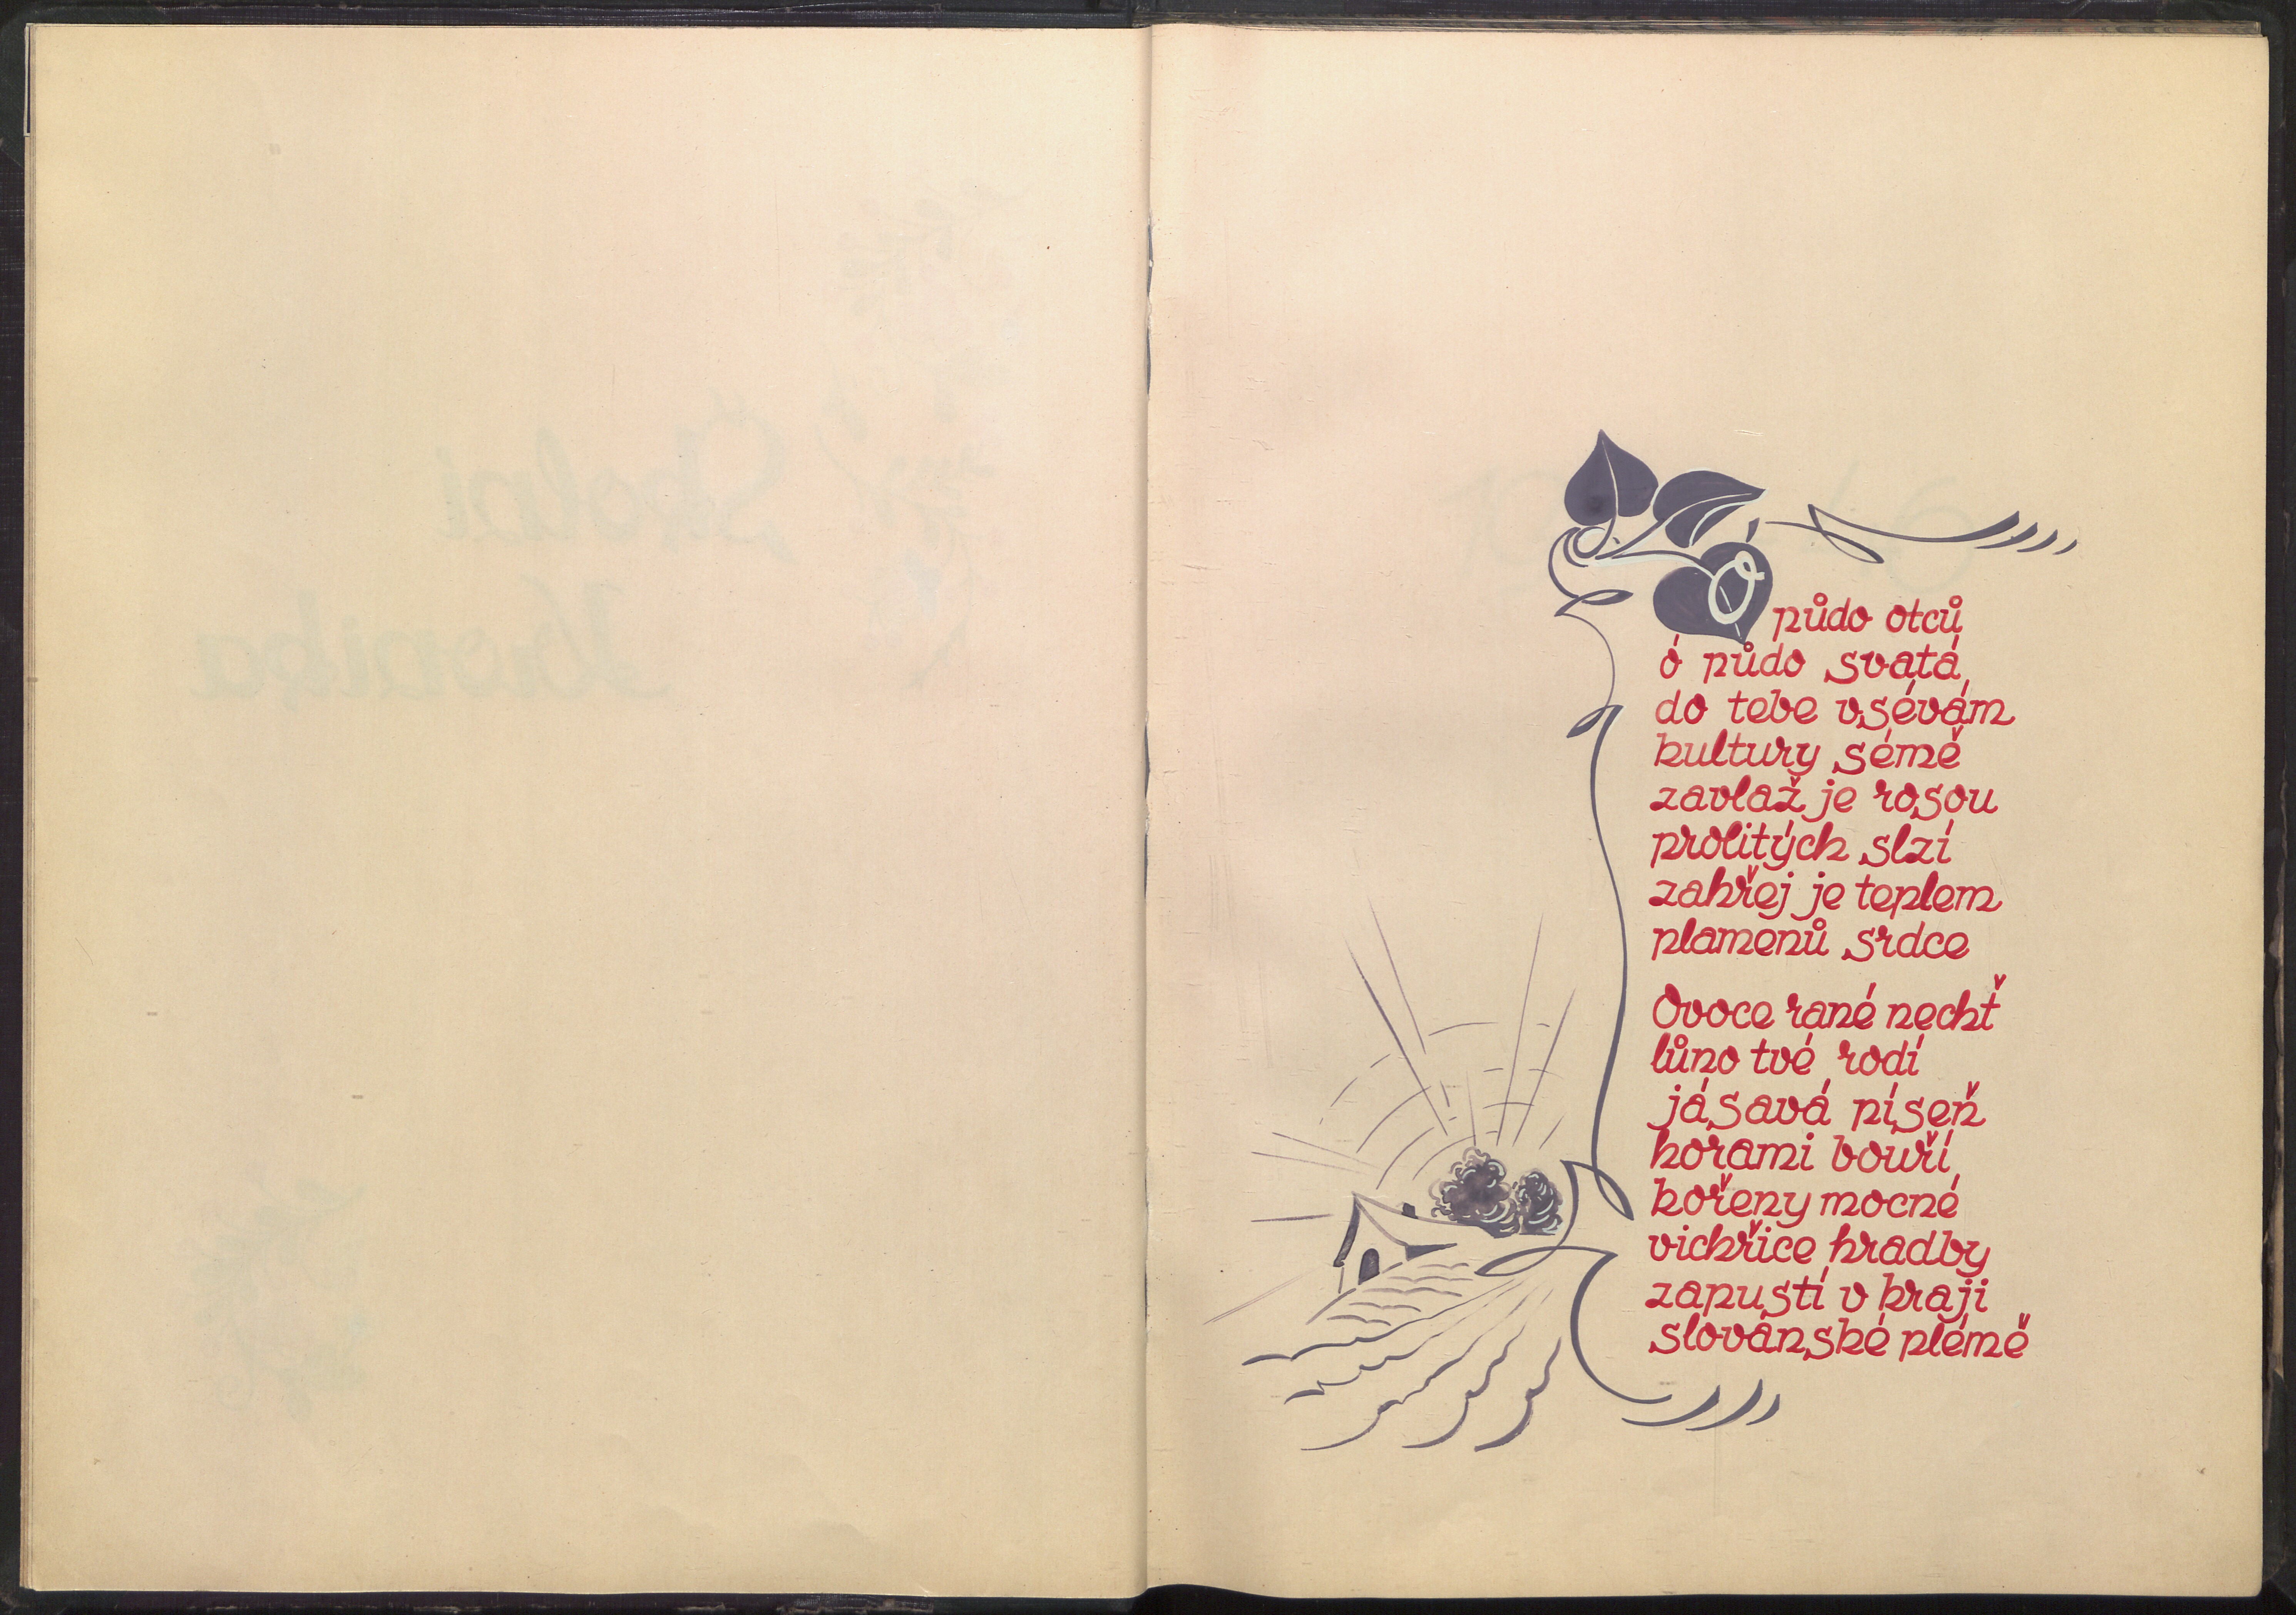 Školní
Kronika
Ó půdo otců
ó půdo svatá
do tebe vsévám
kultury sémě
zavlaž je rosou
prolitých slzí
zahřej je teplem
plamenů srdce
Ovoce rané nechť
lůno tvé rodí
jásavá píseň
horami bouří
kořeny mocné
vichřice hradby
zapustí v kraji
slovánské plémě